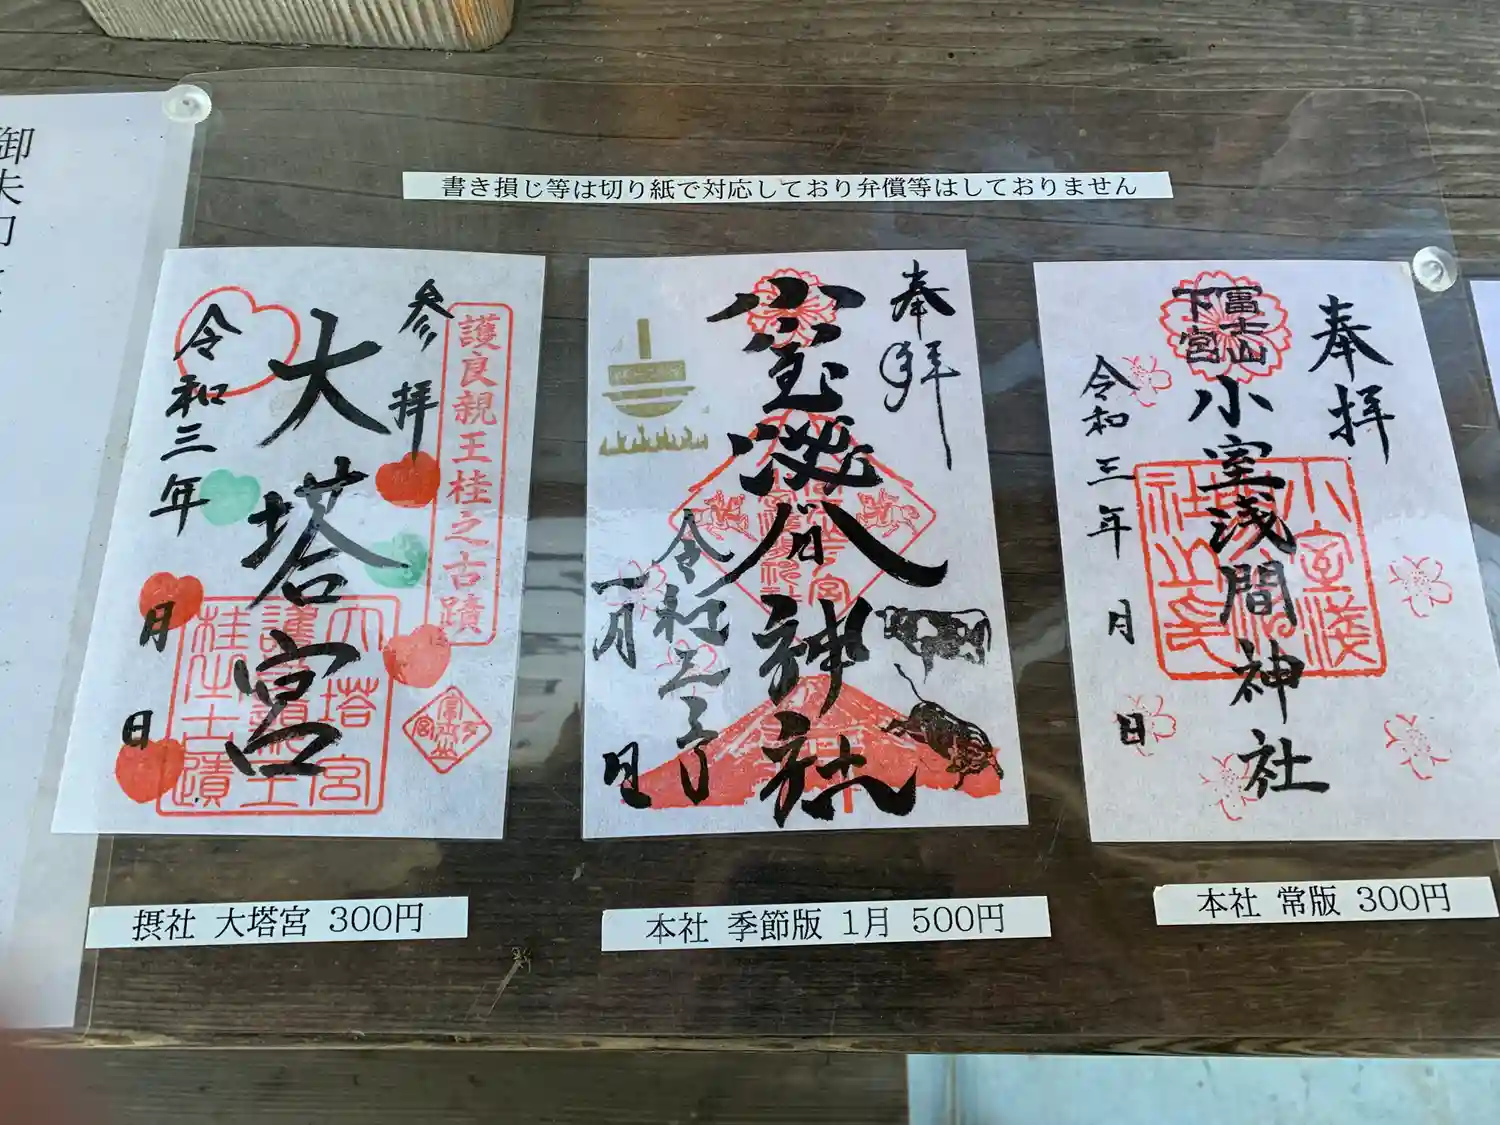 書き損じ等は切り紙で対応しており弁償等はしておりません
御朱印
参拝
護良親王桂之古蹟
大塔宮
令和三年
月
日
摂社 大塔宮 300円
奉拝
小室浅間神社
令和三年
一月
日
本社 季節版 1月 500円
奉拝
冨士山
下宮
小室浅間神社
令和三年
月
日
本社 常版 300円